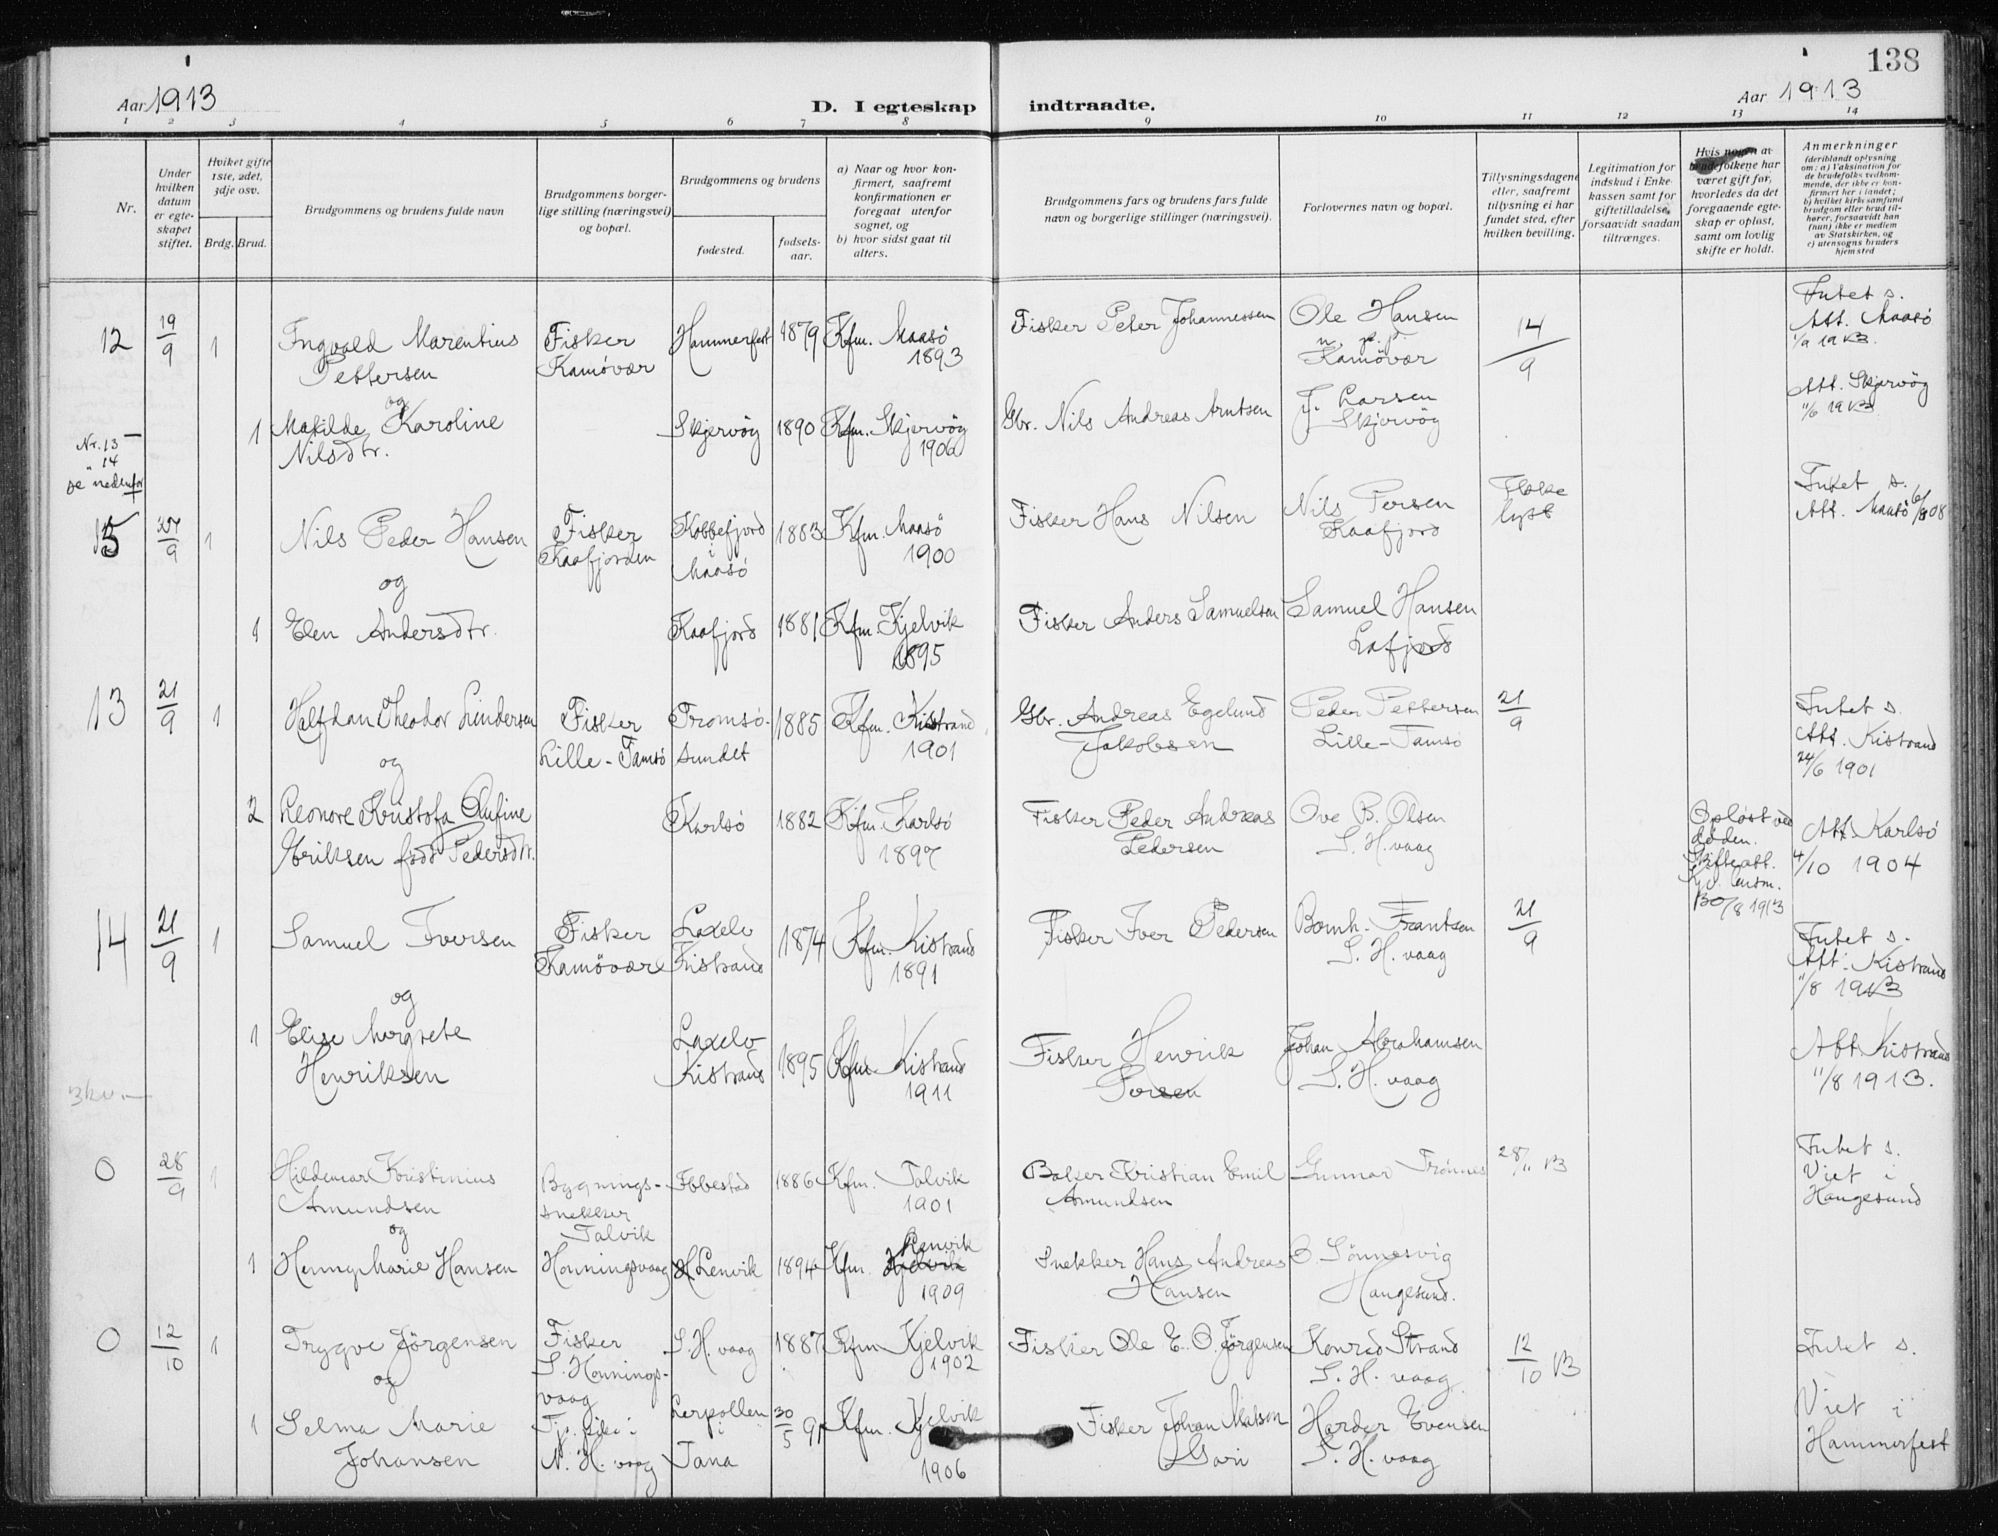 138
Aar 1913
D. I egteskap indtraadte.
Aar 1913
1 2 3 4 5 6 7 8 9 10 11 12 13 14
Nr.
Under hvilken datum er egteskapet stiftet.
Hviket gifte 1ste, 2det, 3dje osv.
Brdg. Brud.
Brudgommens og brudens fulde navn
Brudgommens borgerlige stilling (næringsvei) og bopæl.
Brudgommens og brudens
fødested.
fødselsaar.
a) Naar og hvor konfirmert, saafremt konfirmationen er foregaat utenfor sognet, og
b) hvor sidst gaat til alters.
Brudgommens fars og brudens fars fulde navn og borgerlige stillinger (næringsvei).
Forlovernes navn og bopæl.
Tillysningsdagene eller, saafremt tillysning ei har fundet sted, efter hvilken bevilling.
Legitimation for indskud i Enkekassen samt for giftetilladelse, forsaavidt saadan tiltrænges.
Hvis nogen av brudefolkene har været gift før, hvorledes da det foregaaende egteskap er opløst, samt om lovlig skifte er holdt.
Anmerkninger
(deriblandt oplysning om: a) Vaksination for de brudefolks vedkommende, der ikke er konfirmert her i landet; b) hvilket kirkesamfund brudgom eller brud tilhører, forsaavidt han (hun) ikke er medlem av Statskirken, og c) utensogns bruders hjemsted
12 19/9 1 Ingvald Marentius Pettersen Fisker Kamøvær Hammerfest 1879 Kfm. Maasö 1893 Fisker Peter Johannessen Ole Hansen Kamövær 14/9 Intet s. Att. Maasö 1/9 1913.
og
1 Matilde Karoline Nilsdtr. Skjervöy 1890 Kfm. Skjervöy 1906 Gbr. Nils Andreas Arntsen J. Larsen Skjervöy Att. Skjervöy 11/6 1913
Nr. 13 —
" 14
se nedenfor
15 27/9 1 Nils Peder Hansen Fisker Kaafjorden Kobbefjord i Maasö 1883 Kfm. Maasö 1900 Fisker Hans Nilsen Nils Persen Kaafjord Ikke lyst Intet s. Att. Maasö
og
1 Elen Andersdtr. Kaafjord 1881 Kfm. Kjelvik 1895 Fisker Anders Samuelsen Samuel Hansen Lafjord
13 21/9 1 Halfdan Theodor Lindersen Fisker Lille-Tamsö Tromsösundet 1885 Kfm. Kistrand 1901 Gbr. Andreas Egelund Jakobsen Peder Pettersen Lille-Tamsö 21/9 Intet s. Att. Kistrand 24/6 1901
og
2 Leonore Kristofa Eriksen född Pedersdtr. Karlsö 1882 Kfm. Karlsö 1897 Fisker Peder Andreas Pedersen Ove B. Olsen S. H. vaag Opløst ved døden. Skifteatt. 1913 Att. Karlsö 4/10 1904
14 21/9 1 Samuel Iversen Fisker Kamövær Laxelv Kistrand 1874 Kfm. Kistrand 1891 Fisker Iver Pedersen Bernh. Frantsen S. H. vaag 21/9 Intet s. Att. Kistrand 11/8 1913
og
1 Elise Margrete Henriksen Laxelv Kistrand 1895 Kfm. Kistrand 1911 Fisker Henrik Persen Johan Abrahamsen S. H. vaag Att. Kistrand 11/8 1913.
3 kv. —
0 28/9 1 Hildemar Kristinius Amundsen Bygningssnekker Talvik Ibbestad 1886 Kfm. Talvik 1901 Baker Kristian Emil Amundsen Gunnar Trønnes 28/11 13 Intet s. Viet i Haugesund
og
1 Henny Marie Hansen Honningsvaag Lenvik 1894 Kfm. Kjelvik Lenvik 1909 Snekker Hans Andreas Hansen O Sönnesvig Haugesund.
0 12/10 1 Trygve Jörgensen Fisker S. Honningsvaag S. H. vaag 1887 Kfm Kjelvik 1902 Fisker Ole E. O. Jörgensen Konrad Strand S. H. vaag 12/10 13 Intet s.
og
1 Selma Marie Johansen Tj. pike i N. H. vaag Lerpollen i Tana 30/5 91 Kfm. Kjelvik 1906 Fisker Johan Matson Gari Herder Evensen S. H. vaag Viet i Hammerfest